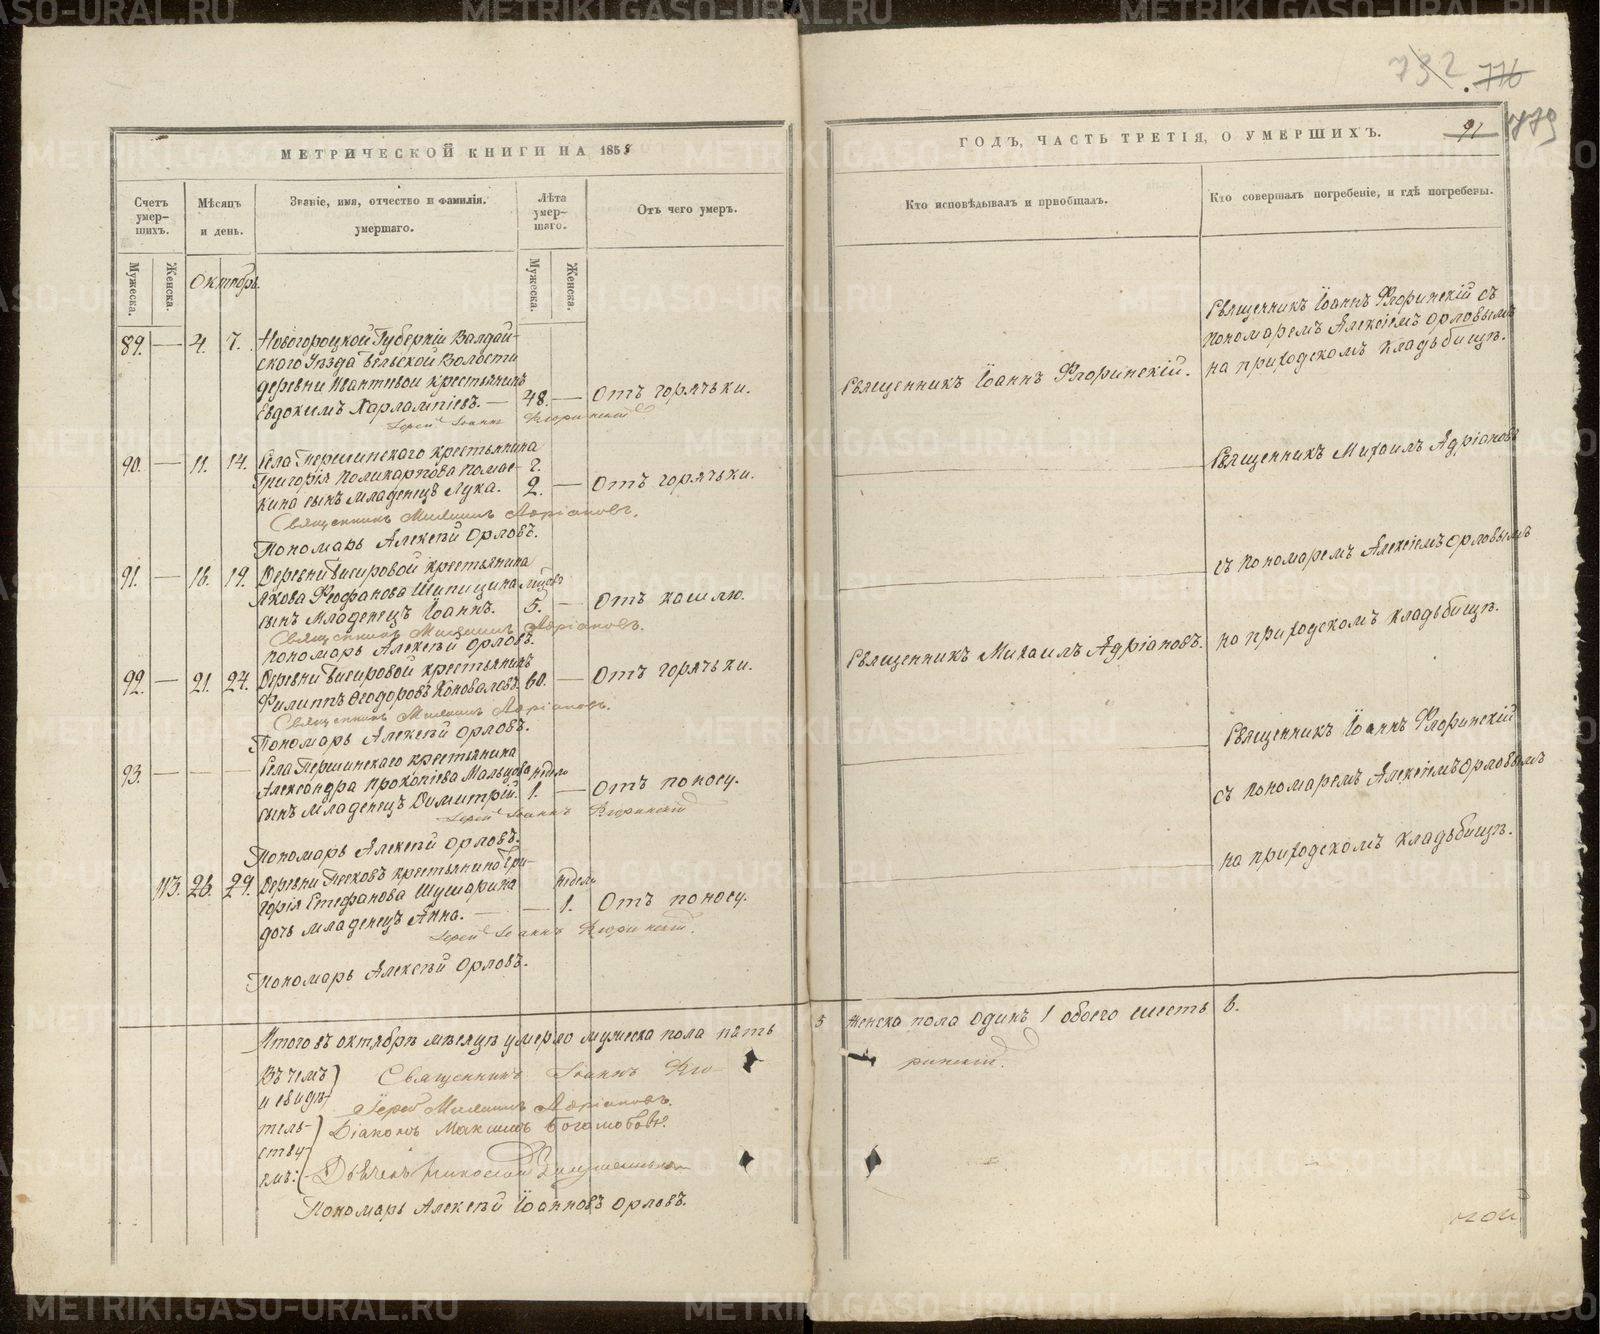 732 776
91 879
МЕТРИЧЕСКОЙ КНИГИ НА 1858
ГОДЪ, ЧАСТЬ ТРЕТІЯ, О УМЕРШИХЪ.
Счетъ умер-шихъ.
Мѣсяцъ и день.
Званіе, имя, отчество и фамилія. умершаго.
Лѣта умер-шаго.
Отъ чего умеръ.
Кто исповѣдывалъ и пріобщалъ.
Кто совершалъ погребеніе, и гдѣ погребены.
Мужеска. Женска.
Мужеска. Женска.
Октябрь.
89. — 4. 7. Новогороцкой Губерніи Валдай-
скаго Уѣзда Бельской Волости
деревни крестьянинъ
Евдокимъ Харлампіевъ. — 48. — Отъ горячьки.
Іерей Іоаннъ Флоринскій
Священникъ Іоаннъ Флоринскій.
Священникъ Іоаннъ Флоринскій съ
пономаремъ Алексіемъ Орловымъ
на приходскомъ кладьбищѣ.
90. — 11. 14. Села Першинскаго крестьянина
Григорія Поликарпова
сынъ младенецъ Лука. 2. — Отъ горячьки.
Священникъ Михаилъ Адріановъ.
Пономарь Алексѣй Орловъ.
Священникъ Михаилъ Адріановъ
91. — 16. 19. Деревни крестьянина
Якова Феофанова Шипицина
сынъ младенецъ Іоаннъ. 5. — Отъ кашлю.
Священникъ Михаилъ Адріановъ.
пономарь Алексѣй Орловъ.
съ пономаремъ Алексіемъ Орловымъ
92. — 21. 24. Деревни крестьянинъ
Филиппъ Феодоровъ Коноваловъ. 60. — Отъ горячьки.
Священникъ Михаилъ Адріановъ.
Пономарь Алексѣй Орловъ.
Священникъ Михаилъ Адріановъ.
на приходскомъ кладьбищѣ.
93. — — — Села Першинскаго крестьянина
Александра Прокопіева Мальцова недѣль
сынъ младенецъ Димитрій. 1. — Отъ поносу.
Іерей Іоаннъ Флоринскій
Пономарь Алексѣй Орловъ.
Священникъ Іоаннъ Флоринскій
съ пономаремъ Алексіемъ Орловымъ
113. 26. 29. Деревни Песковъ крестьянина Гри-
горія Стефанова Шушарина недѣль
дочь младенецъ Анна. — — 1. Отъ поносу.
Іерей Іоаннъ Флоринскій.
Пономарь Алексѣй Орловъ.
на приходскомъ кладьбищѣ.
Итого въ октябрѣ мѣсяцѣ умерло мужеска пола пять 5 женска пола одинъ 1 обоего шесть 6.
Въ чемъ
и свидѣ-
тель-
ству-
емъ:
Священникъ Іоаннъ Фло-
ринскій.
Іерей Михаилъ Адріановъ.
Діаконъ Максимъ Богомоловъ.
Дьячекъ
Пономарь Алексѣй Іоанновъ Орловъ.
METRIKI.GASO-URAL.RU